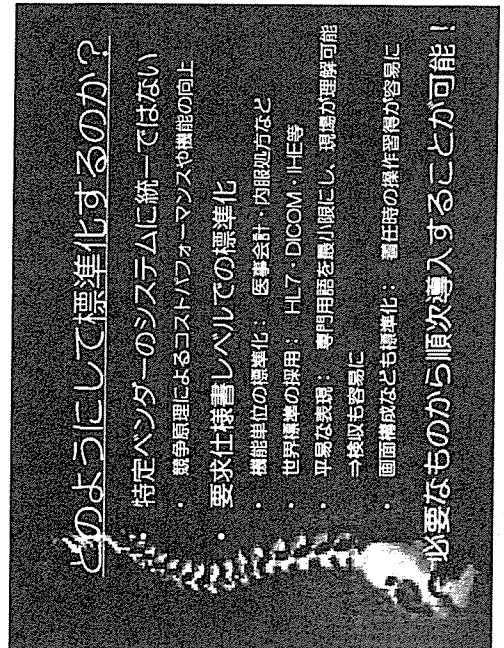 どのようにして標準化するのか？
特定ベンダーのシステムに統一ではない
・ 競争原理によるコストパフォーマンスや機能の向上
・ 要求仕様書レベルでの標準化
・ 機能単位の標準化： 医事会計・内服処方など
・ 世界標準の採用： HL7・DICOM・IHE等
・ 平易な表現： 専門用語を最小限にし、現場が理解可能
⇒検収も容易に
・ 画面構成なども標準化： 着任時の操作習得が容易に
必要なものから順次導入することが可能！